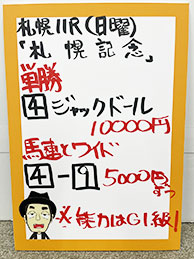 札幌11R(日曜)
「札幌記念」
単勝
4ジャックドール
10000円
馬連とワイド
4-9 5000円
ずつ
※能力はG1級!